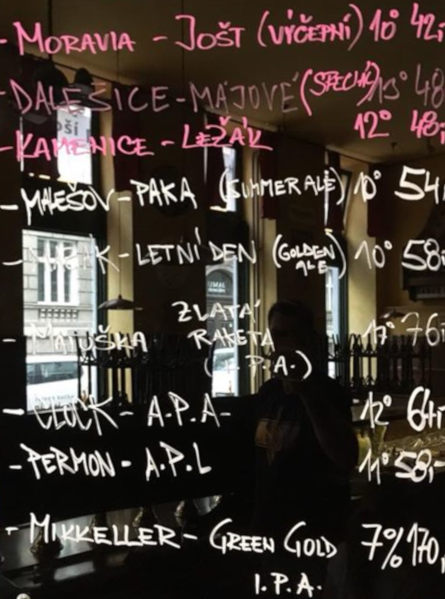 - MORAVIA - JOŠT (VÝČEPNÍ) 10° 42,-
- DALEŠICE - MÁJOVÉ (SPECIÁL) 13° 48
- KAMENICE - LEŽÁK 12° 48,-
- MALEŠOV - PAKA (SUMMER ALE) 10° 54,
- LETNÍ DEN (GOLDEN ALE) 10° 58,
- MATUŠKA ZLATÁ RAKETA (I.P.A.) 17° 76,
- CLOCK - A.P.A - 12° 64,-
- PERMON - A.P.L 11° 58,-
- MIKKELLER - GREEN GOLD 7% 170,
I.P.A.